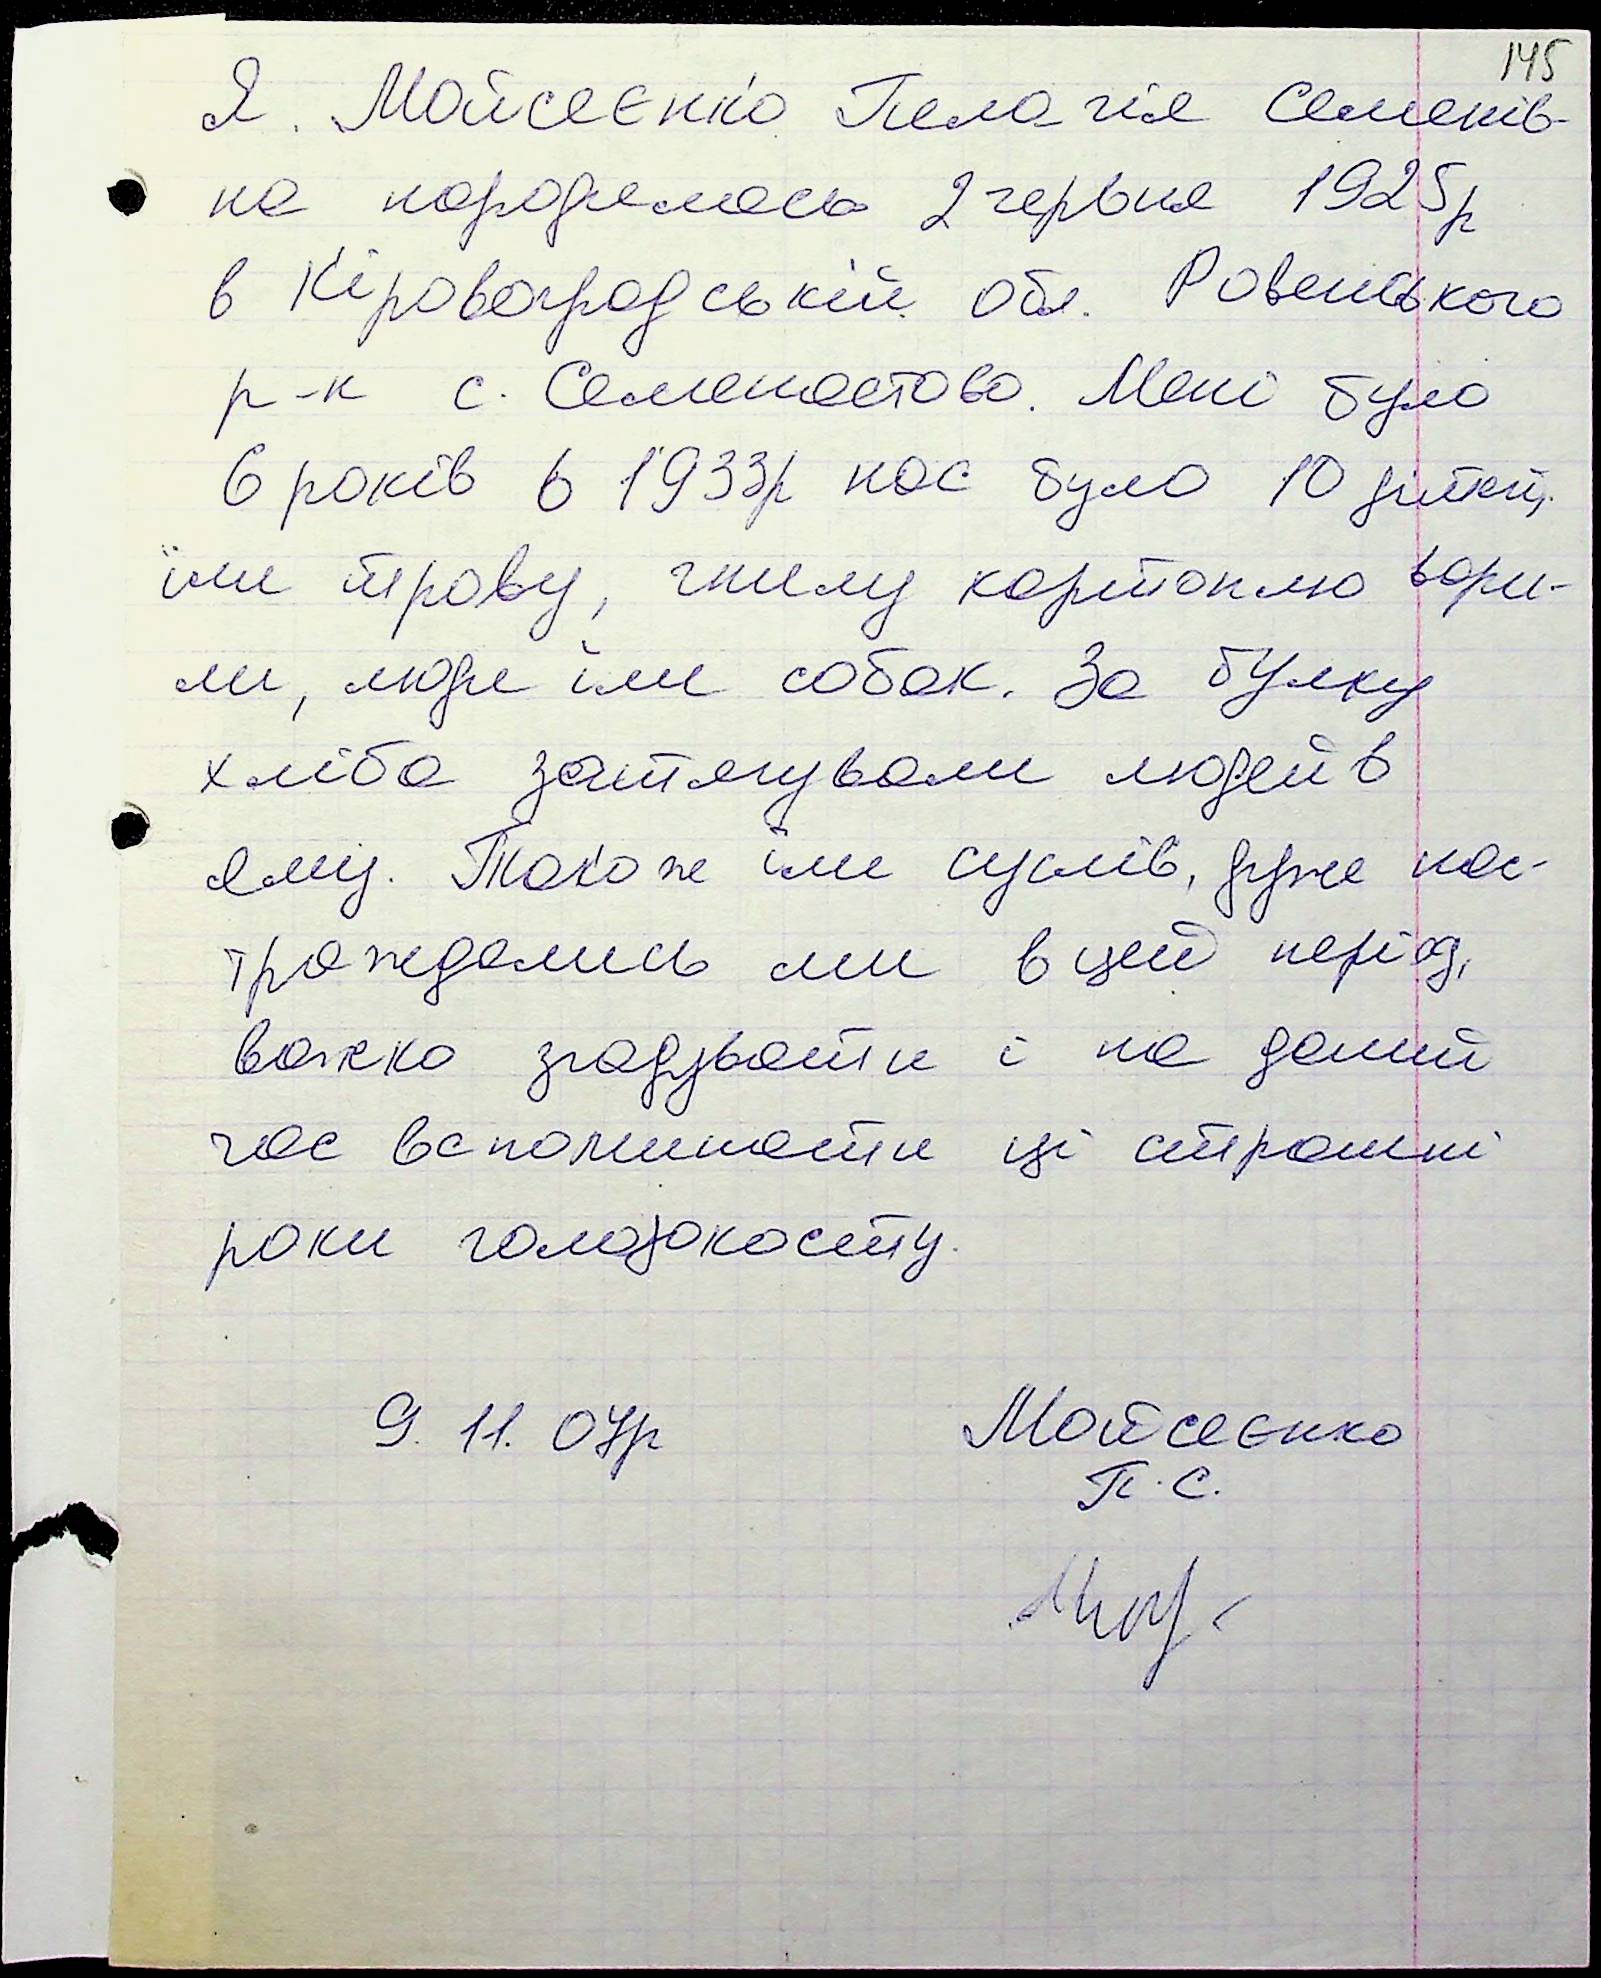 145
Я. Мойсеєнко Пелагія Семенів-
на народилась 2 червня 1925р
в Кіровоградській обл. Ровенського
р-н с. Семенастово. Мені було
6 років в 1933р нас було 10 дітей,
їли траву, гнилу картоплю вари-
ли, люди їли собак. За булку
хліба затягували людей в
яму. Також їли суслів, дуже нас-
траждались ми в цей період,
важко згадувати і на даний
час вспоминати ці страшні
роки голодокосту.
9. 11. 07р
Мойсеєнко
П. С.